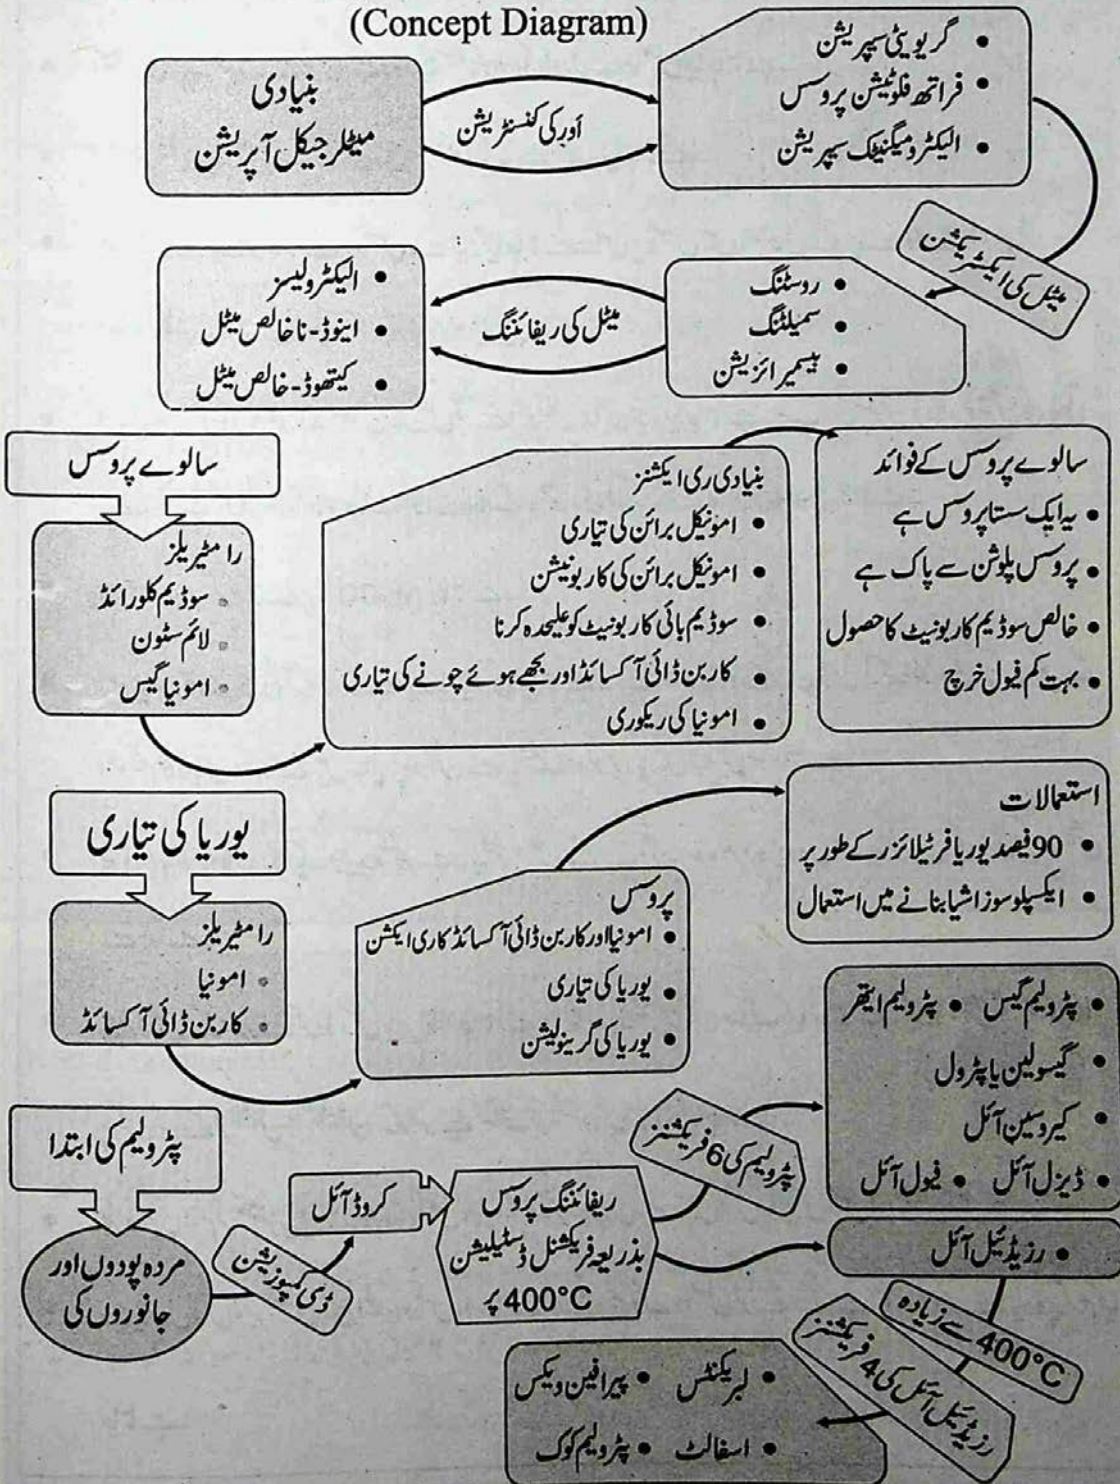 (Concept Diagram)
بنیادی
میٹلرجیکل آپریشن
اَور کی کنسنٹریشن
• گریویٹی سیپریشن
• فراتھ فلوٹیشن پروسس
• الیکٹرومیگنیٹک سیپریشن
میٹل کی ایکسٹریکشن
• روسٹنگ
• سمیلٹنگ
• بیسیمرائزیشن
میٹل کی ریفائننگ
• الیکٹرولیسز
• اینوڈ-ناخالص میٹل
• کیتھوڈ-خالص میٹل
سالوے پروسس
را مٹیریلز
• سوڈیم کلورائڈ
• لائم سٹون
• امونیا گیس
بنیادی ری ایکشنز
• امونیکل برائن کی تیاری
• امونیکل برائن کی کاربونیشن
• سوڈیم بائی کاربونیٹ کو علیحدہ کرنا
• کاربن ڈائی آکسائڈ اور بجھے ہوئے چونے کی تیاری
• امونیا کی ریکوری
سالوے پروسس کے فوائد
• یہ ایک سستا پروسس ہے
• پروسس پلوشن سے پاک ہے
• خالص سوڈیم کاربونیٹ کا حصول
• بہت کم فیول خرچ
یوریا کی تیاری
را مٹیریلز
• امونیا
• کاربن ڈائی آکسائڈ
پروسس
• امونیا اور کاربن ڈائی آکسائڈ کا ری ایکشن
• یوریا کی تیاری
• یوریا کی گرینولیشن
استعمالات
• 90 فیصد یوریا فرٹیلائزر کے طور پر
• ایکسپلوسوز اشیا بنانے میں استعمال
پٹرولیم کی ابتدا
مردہ پودوں اور
جانوروں کی
ڈی کمپوزیشن
کروڈ آئل
ریفائننگ پروسس
بذریعہ فریکشنل ڈسٹیلیشن
400°C پر
پٹرولیم کی 6 فریکشنز
• پٹرولیم گیس • پٹرولیم ایتھر
• گیسولین یا پٹرول
• کیروسین آئل
• ڈیزل آئل • فیول آئل
• رزیڈئیل آئل
400°C سے زیادہ
رزیڈئیل آئل کی 4 فریکشنز
• لبریکنٹس • پیرافین ویکس
• اسفالٹ • پٹرولیم کوک